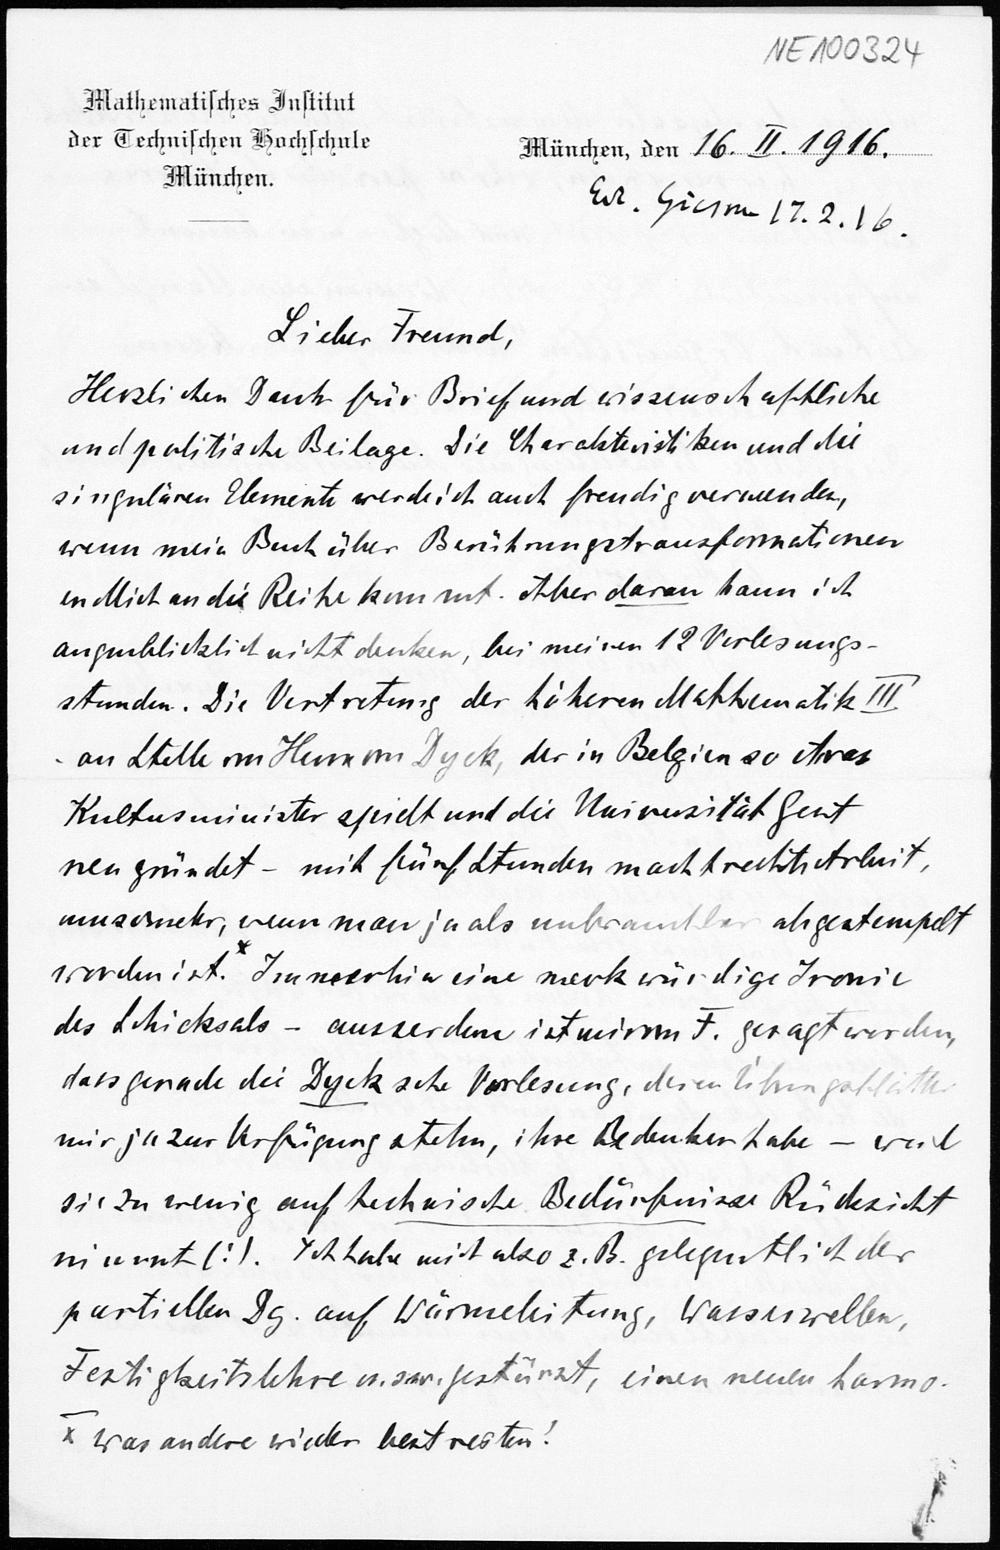 NE100324
Mathematisches Institut
der Technischen Hochschule
München.
München, den 16. II. 1916.
Erh. Giessen 17.2.16.
Lieber Freund,
Herzlichen Dank für Brief und wissenschaftliche
und politische Beilage. Die Charakteristiken und die
singulären Elemente werde ich auch freudig verwenden,
wenn mein Buch über Berührungstransformationen
endlich an die Reihe kommt. Aber daran kann ich
augenblicklich nicht denken, bei meinen 12 Vorlesungs-
stunden. Die Vertretung der höheren Mathematik III
- an Stelle von Herrn von Dyck, der in Belgien so etwas
Kultusminister spielt und die Universität Gent
neu gründet - mit fünf Stunden macht recht Arbeit,
umsomehr, wenn man ja als unbrauchbar abgestempelt
worden ist.* Immerhin eine merkwürdige Ironie
des Schicksals - ausserdem ist mir von F. gesagt worden,
dass gerade die Dycksche Vorlesung, deren Übungsblätter
mir ja zur Verfügung stehn, ihre Bedenken habe - weil
sie zu wenig auf technische Bedürfnisse Rücksicht
nimmt (!). Ich habe mich also z.B. gelegentlich der
partiellen Dg. auf Wärmeleitung, Wasserwellen,
Festigkeitslehre u.s.w. gestürzt, einen neuen harmo-
x was andere wieder bestreiten!